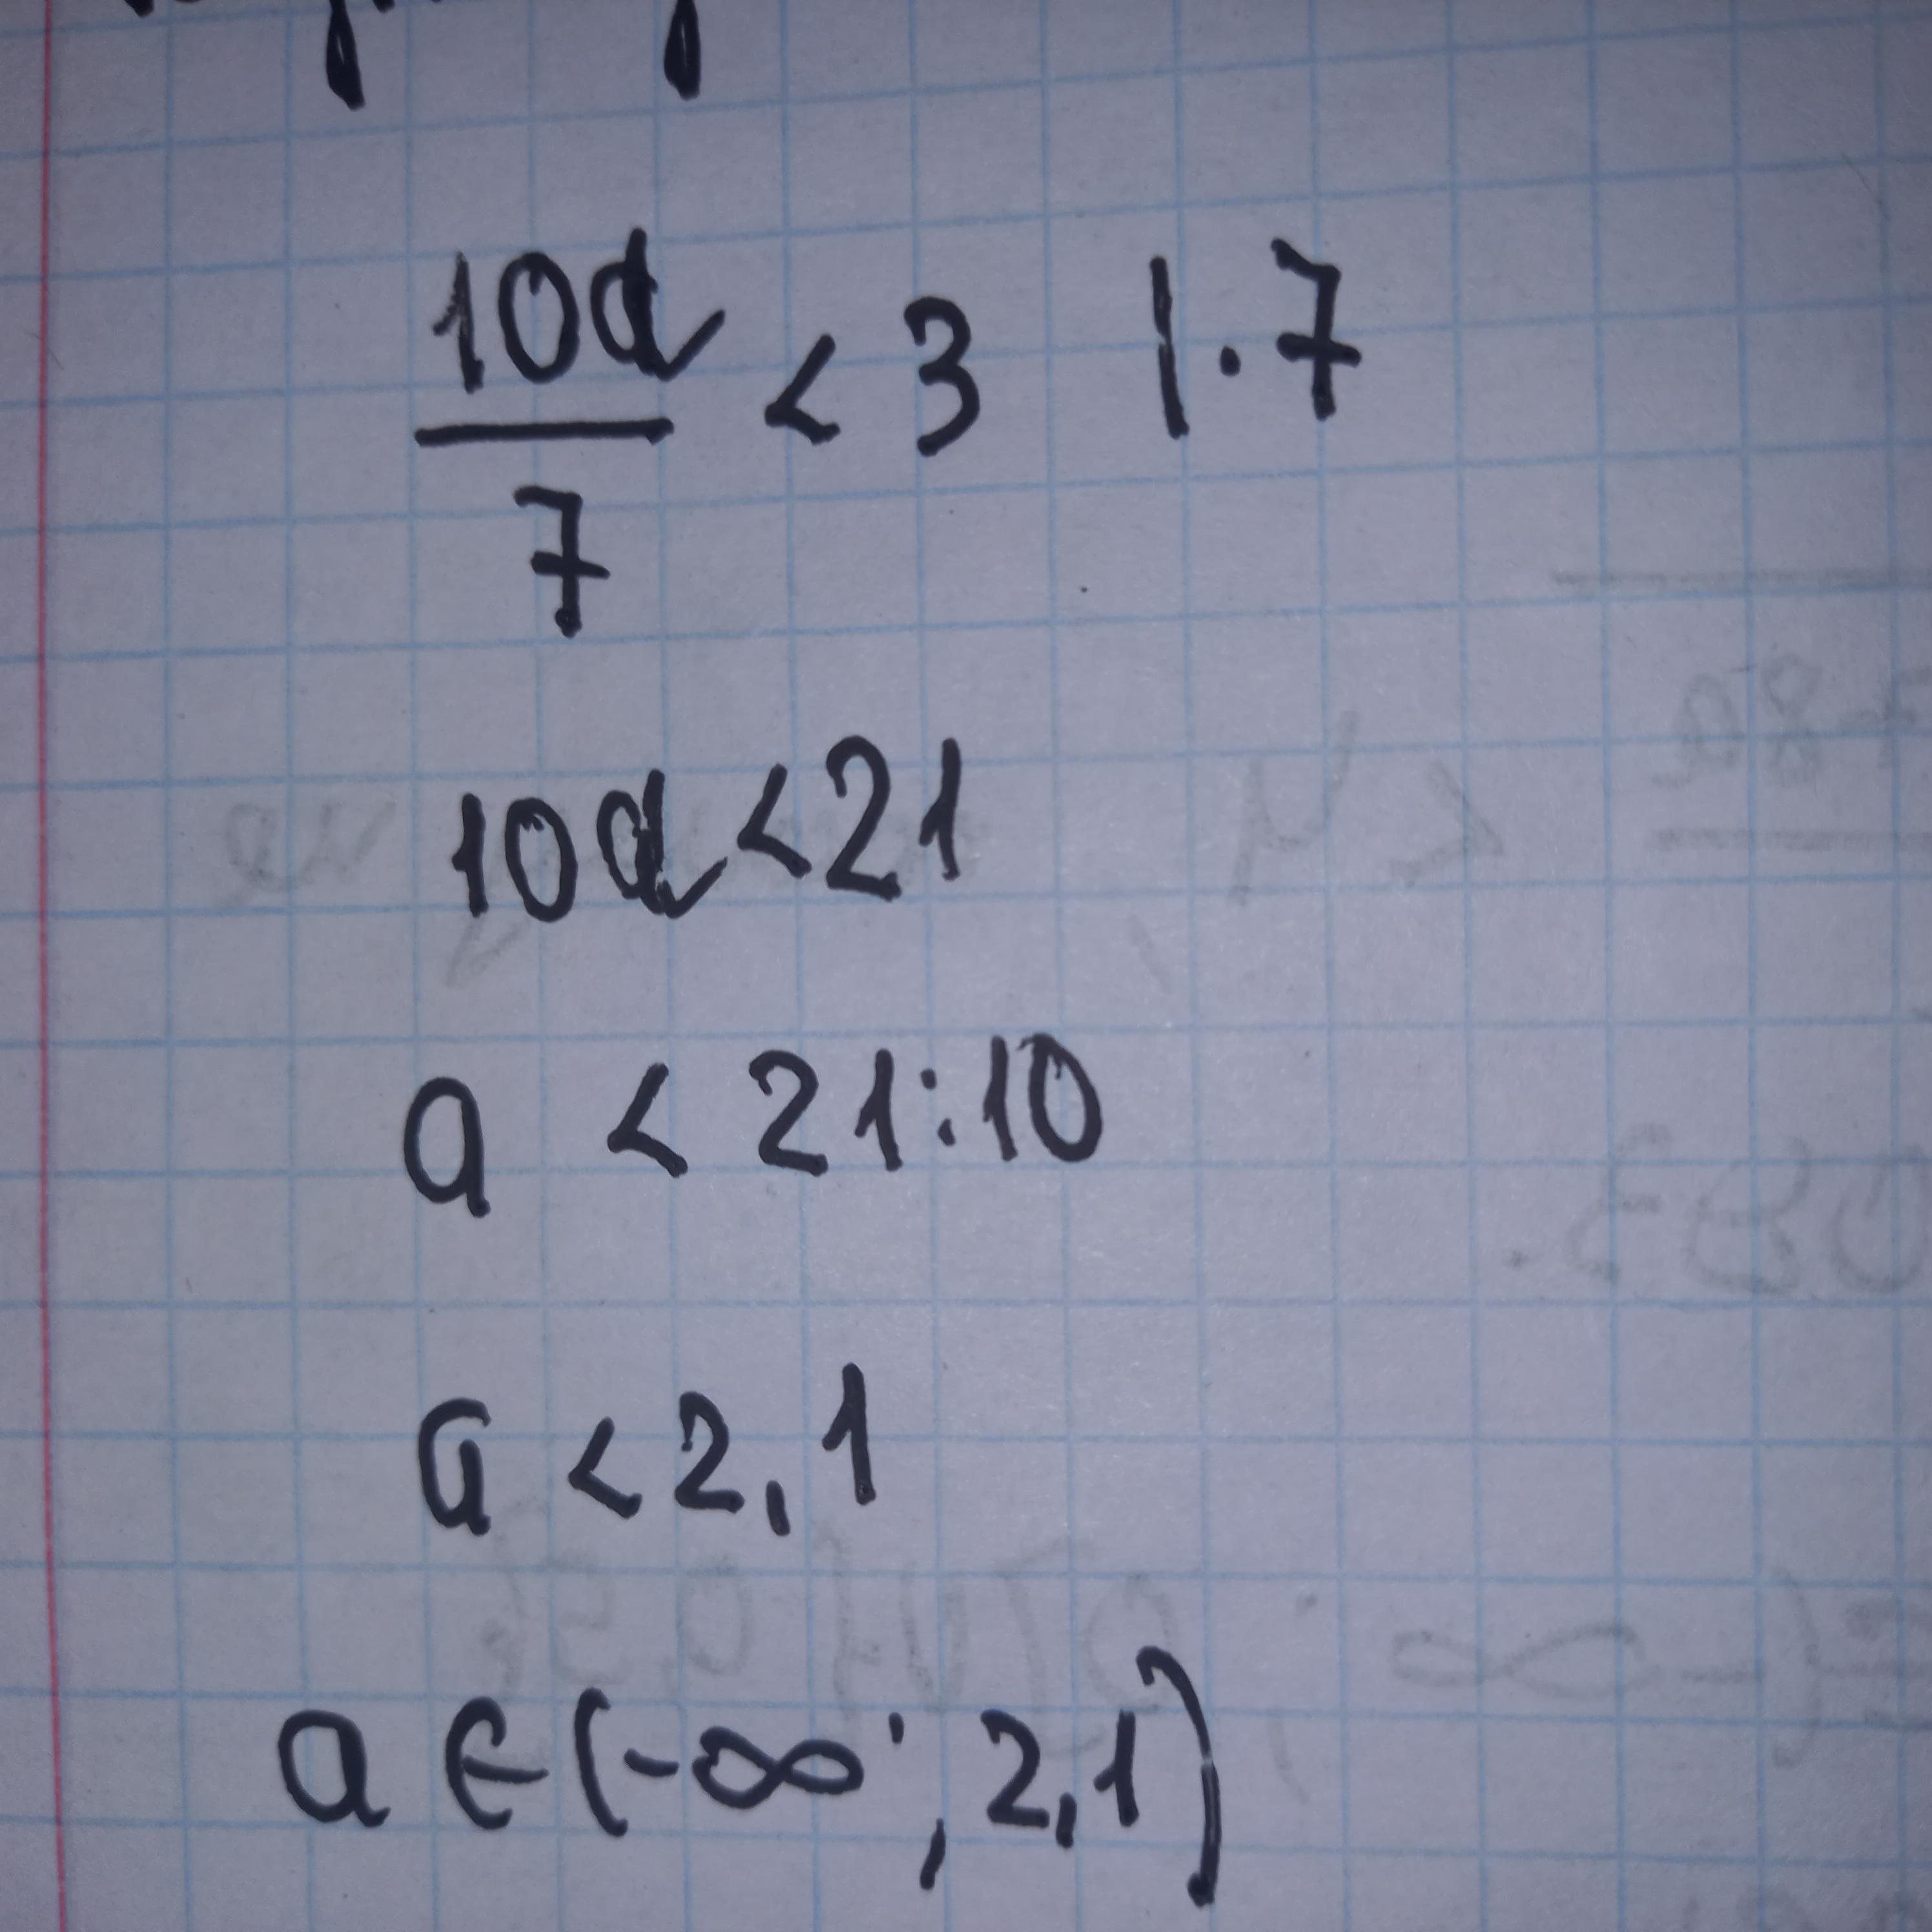 10a/7 < 3 | · 7
10a < 21
a < 21:10
a < 2,1
a ∈ (-∞; 2,1)